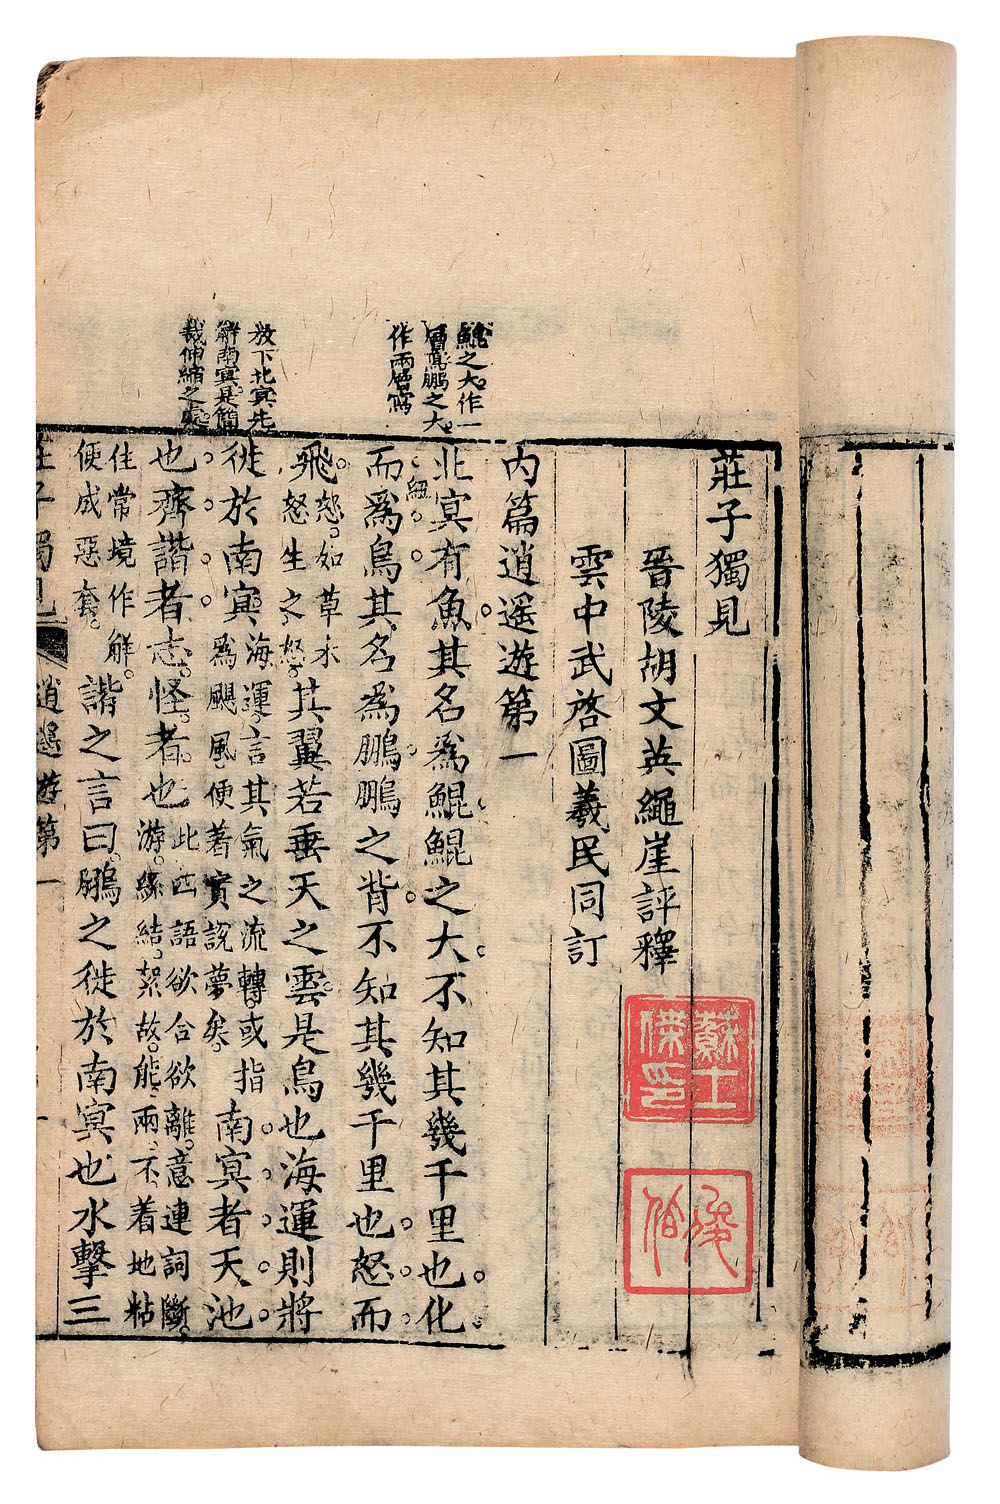 莊子獨見
晉陵胡文英繩崖評釋
雲中武啓圖羲民同訂
蘇士
傑印
內篇逍遙遊第一
鯤之大作一
層寫鵬之大
作兩層寫
北冥有魚其名爲鯤鯤之大不知其幾千里也化
細
而爲鳥其名爲鵬鵬之背不知其幾千里也怒而
飛怒如草木怒生之怒其翼若垂天之雲是鳥也海運則將
放下北冥先
解南冥是簡
裁伸縮之處
徙於南冥海運言其氣之流轉或指爲颶風便著實說夢矣南冥者天池
也齊諧者志怪者也此四語欲合欲離意連詞斷游絲結絮故能兩不着地粘
住常境作解便成惡套諧之言曰鵬之徙於南冥也水擊三
莊子獨見 逍遙遊第一